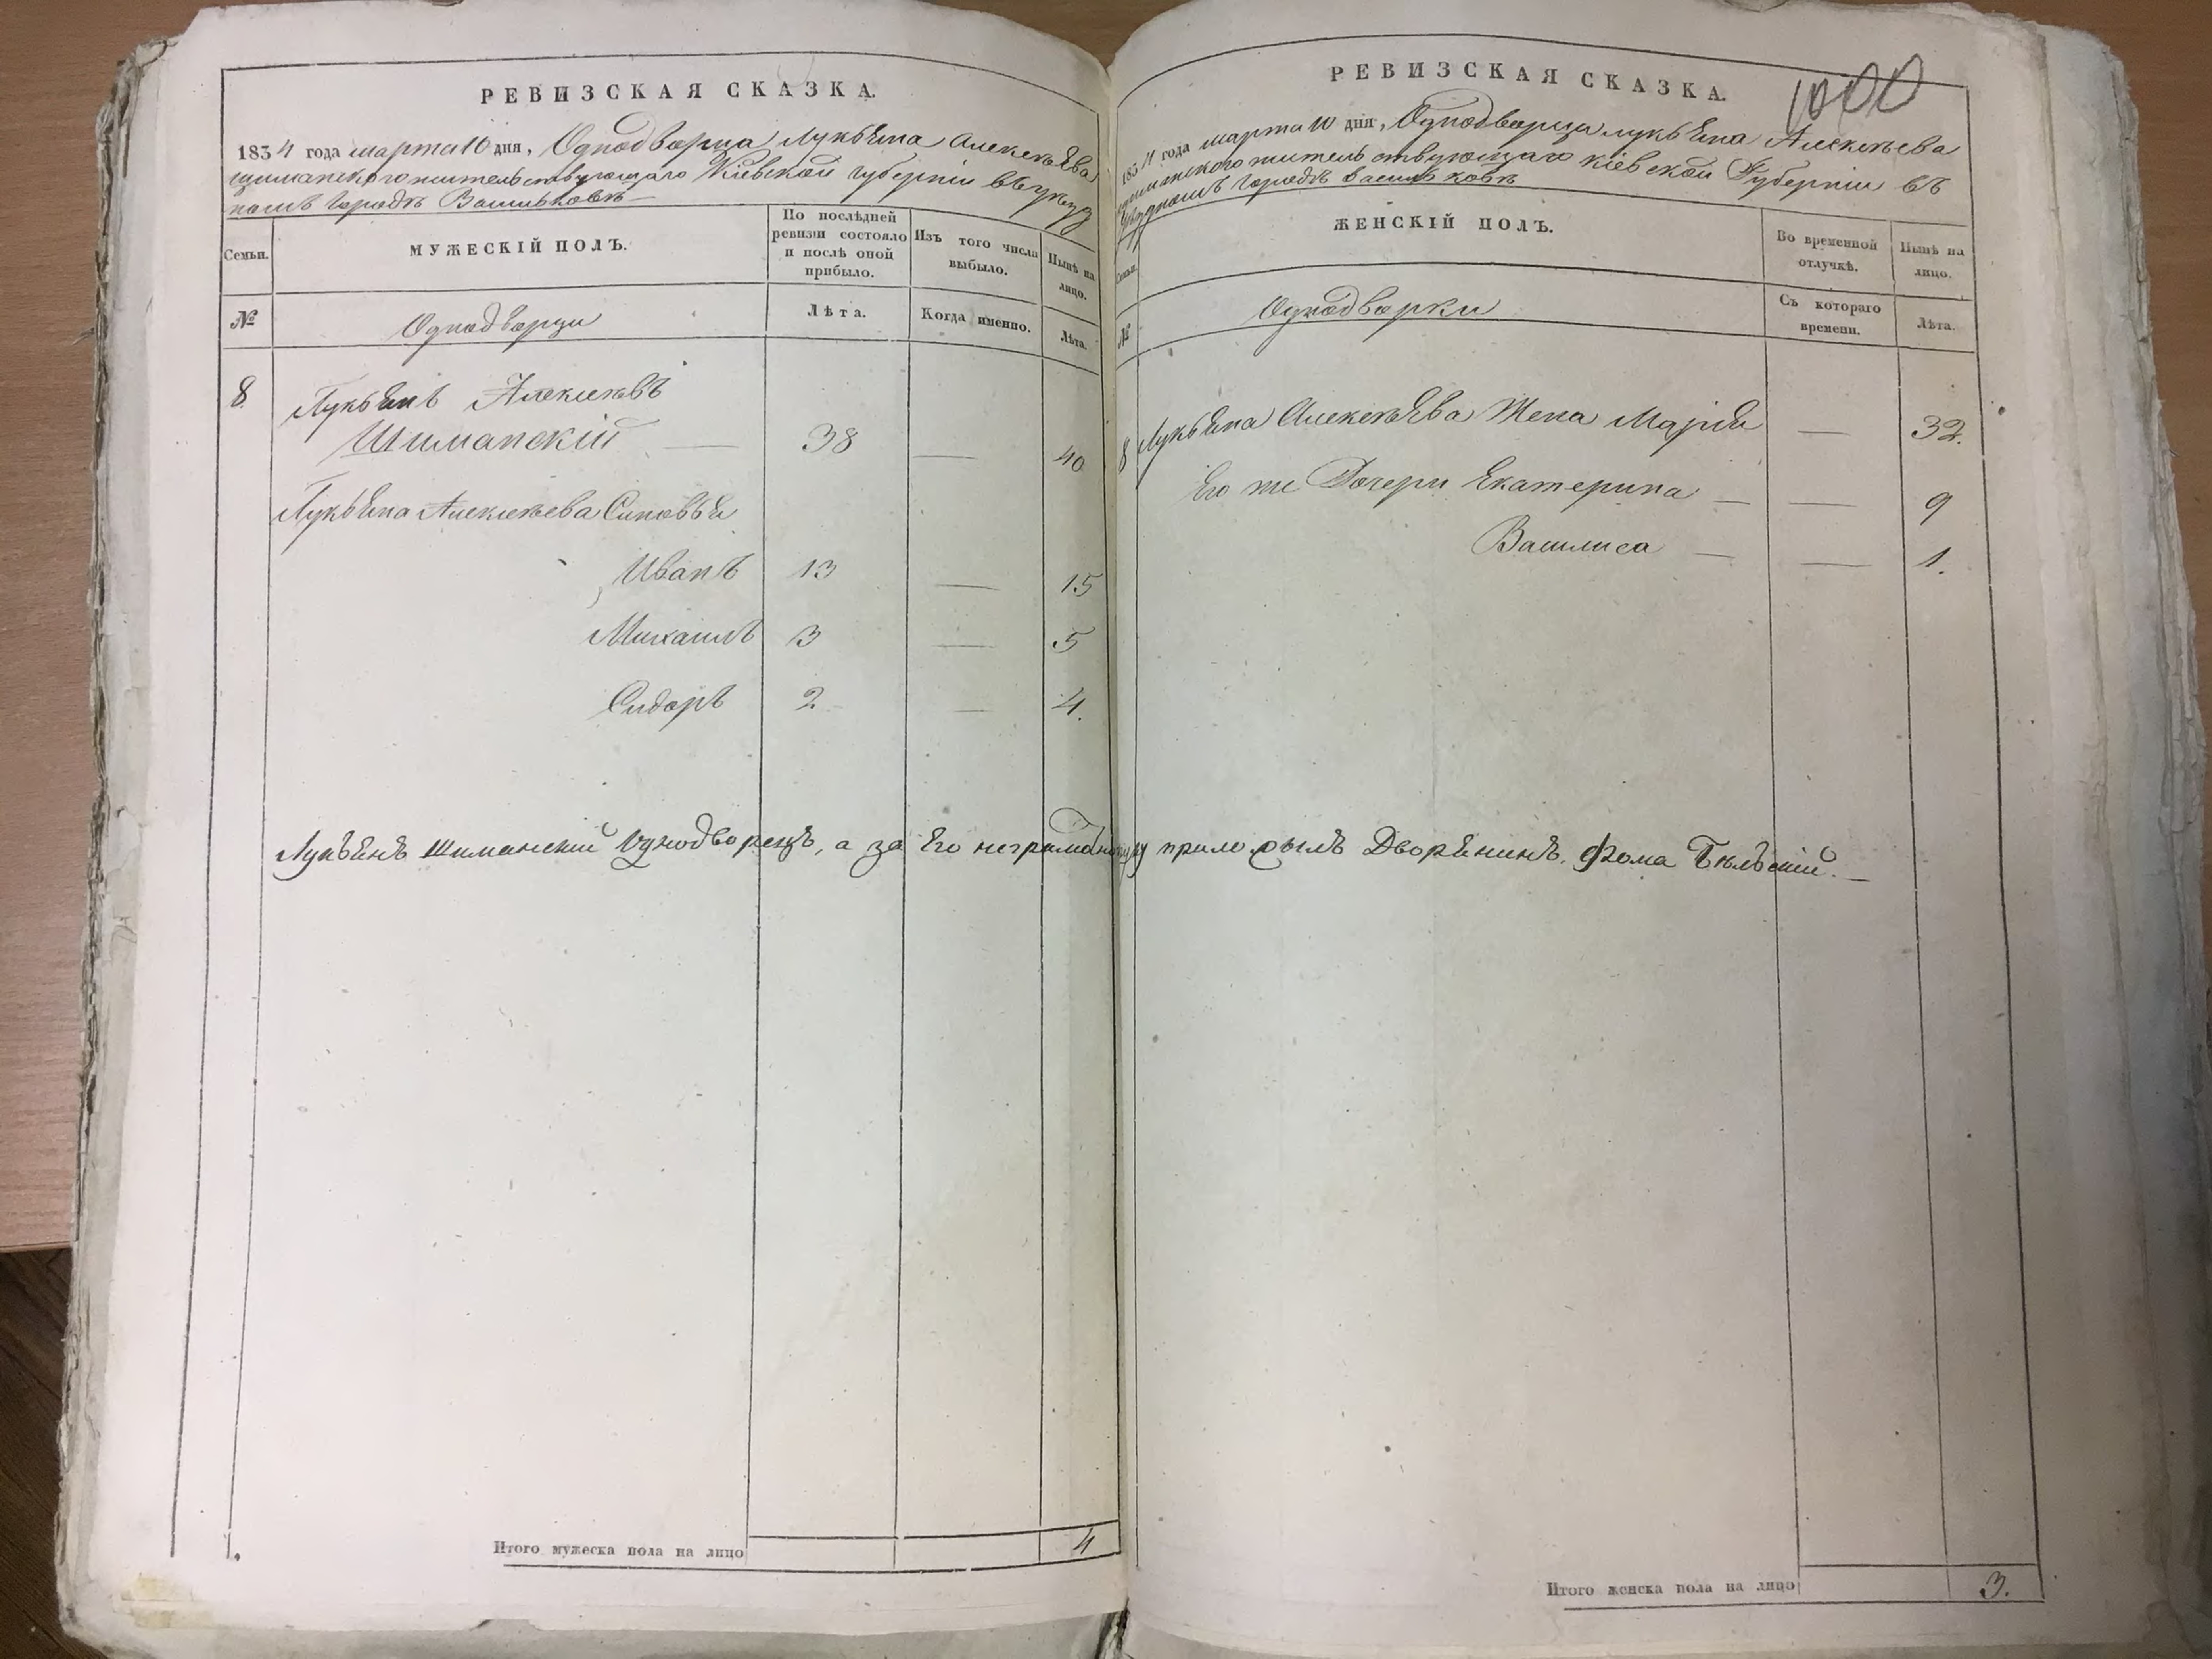 РЕВИЗСКАЯ СКАЗКА.
1834 года марта 10 дня, Однодворца Лукьяна Алексѣева
Шиманского жительствующаго Кіевской Губерніи въ уѣзд
номъ городѣ Васильковѣ
Семьи.
МУЖЕСКІЙ ПОЛЪ.
По послѣдней
ревизіи состояло
и послѣ оной
прибыло.
Изъ того числа
выбыло.
Нынѣ на
лицо.
№
Однодворцы
Лѣта.
Когда именно.
Лѣта.
8 Лукьянъ Алексѣевъ
Шиманскій — 38 — 40
Лукьяна Алексѣева Сыновья
Иванъ 13 — 15
Михаилъ 3 — 5
Сидоръ 2 — 4.
Итого мужеска пола на лицо 4
РЕВИЗСКАЯ СКАЗКА.
1000
1834 года марта 10 дня, Однодворца Лукьяна Алексѣева
Шиманского жительствующаго Кіевской Губерніи въ
уѣздномъ городѣ Васильковѣ
Семьи.
ЖЕНСКІЙ ПОЛЪ.
Во временной
отлучкѣ.
Нынѣ на
лицо.
№
Однодворки
Съ котораго
времени.
Лѣта.
8 Лукьяна Алексѣева Жена Марія — 32.
Его же Дочери Екатерина — — 9
Василиса — — 1.
Лукьянъ Шиманскій Однодворецъ, а за Его неграмотнаго руку приложилъ Дворянинъ Фома Бѣльскій. —
Итого женска пола на лицо 3.